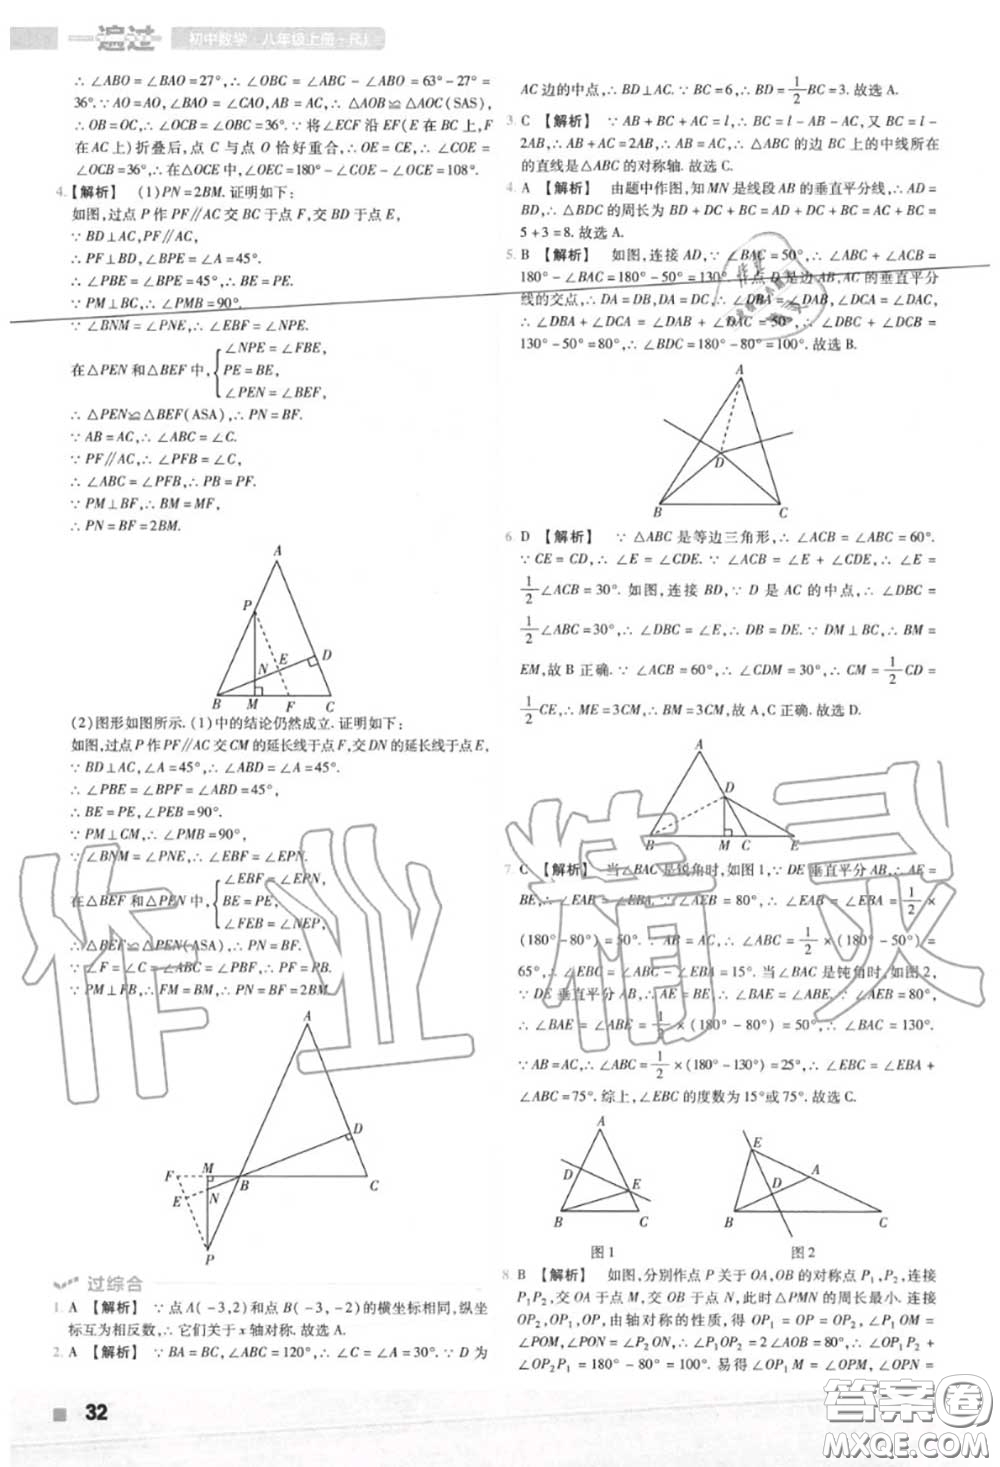 一遍过 初中数学·八年级上册-RJ
∴∠ABO=∠BAO=27°,∴∠OBC=∠ABC-∠ABO=63°-27°=
36°.∵AO=AO,∠BAO=∠CAO,AB=AC,∴△AOB≌△AOC(SAS),
∴OB=OC,∴∠OCB=∠OBC=36°.∵将∠ECF沿EF(E在BC上,F
在AC上)折叠后,点C与点O恰好重合,∴OE=CE,∴∠COE=
∠OCB=36°,∴在△OCE中,∠OEC=180°-∠COE-∠OCE=108°.
4.【解析】 (1)PN=2BM.证明如下:
如图,过点P作PF∥AC交BC于点F,交BD于点E,
∵BD⊥AC,PF∥AC,
∴PF⊥BD,∠BPE=∠A=45°.
∴∠PBE=∠BPE=45°,∴BE=PE.
∵PM⊥BC,∴∠PMB=90°.
∵∠BNM=∠PNE,∴∠EBF=∠NPE.
在△PEN和△BEF中,{∠NPE=∠FBE,
PE=BE,
∠PEN=∠BEF,
∴△PEN≌△BEF(ASA),∴PN=BF.
∵AB=AC,∴∠ABC=∠C.
∵PF∥AC,∴∠PFB=∠C,
∴∠ABC=∠PFB,∴PB=PF.
∵PM⊥BF,∴BM=MF,
∴PN=BF=2BM.
A
P
N E D
B M F C
(2)图形如图所示.(1)中的结论仍然成立.证明如下:
如图,过点P作PF∥AC交CM的延长线于点F,交DN的延长线于点E,
∵BD⊥AC,∠A=45°,∴∠ABD=∠A=45°.
∴∠PBE=∠BPF=∠ABD=45°,
∴BE=PE,∠PEB=90°.
∵PM⊥CM,∴∠PMB=90°,
∴∠BNM=∠PNE,∴∠EBF=∠EPN.
在△BEF和△PEN中,{∠EBF=∠EPN,
BE=PE,
∠FEB=∠NEP,
∴△BEF≌△PEN(ASA),∴BF=PN.
∵∠F=∠C=∠ABC=∠PBF,∴PF=PB.
∵PM⊥FB,∴FM=BM,∴PN=2BM.
A
D
F M
B C
E N
P
过综合
1. A 【解析】 ∵点A(-3,2)和点B(-3,-2)的横坐标相同,纵坐
标互为相反数,∴它们关于x轴对称.故选A.
2. A 【解析】 ∵BA=BC,∠ABC=120°,∴∠C=∠A=30°.∵D为
32
AC边的中点,∴BD⊥AC.∵BC=6,∴BD=1/2BC=3.故选A.
3. C 【解析】 ∵AB+BC+AC=l,∴BC=l-AB-AC,又BC=l-
2AB,∴AB+AC=2AB,∴AB=AC,∴△ABC的边BC上的中线所在
的直线是△ABC的对称轴.故选C.
4. A 【解析】 由题中作图,知MN是线段AB的垂直平分线,∴AD=
BD,∴△BDC的周长为BD+DC+BC=AD+DC+BC=AC+BC=
5+3=8.故选A.
5. B 【解析】 如图,连接AD,∵∠BAC=50°,∴∠ABC+∠ACB=
180°-∠BAC=180°-50°=130°.∵点D是边AB,AC的垂直平分
线的交点,∴DA=DB,DA=DC,∴∠DBA=∠DAB,∠DCA=∠DAC,
∴∠DBA+∠DCA=∠DAB+∠DAC=50°,∴∠DBC+∠DCB=
130°-50°=80°,∴∠BDC=180°-80°=100°.故选B.
A
D
B C
6. D 【解析】 ∵△ABC是等边三角形,∴∠ACB=∠ABC=60°.
∵CE=CD,∴∠E=∠CDE.∵∠ACB=∠E+∠CDE,∴∠E=
1/2∠ACB=30°.如图,连接BD,∵D是AC的中点,∴∠DBC=
1/2∠ABC=30°,∴∠DBC=∠E,∴DB=DE.∵DM⊥BC,∴BM=
EM,故B正确.∵∠ACB=60°,∴∠CDM=30°,∴CM=1/2CD=
1/2CE,∴ME=3CM,∴BM=3CM,故A,C正确.故选D.
A
D
B M C E
7. C 【解析】 当∠BAC是锐角时,如图1.∵DE垂直平分AB,∴AE=
BE,∴∠EAB=∠EBA.∵∠AEB=80°,∴∠EAB=∠EBA=1/2×
(180°-80°)=50°.∵AB=AC,∴∠ABC=1/2×(180°-50°)=
65°,∴∠EBC=∠ABC-∠EBA=15°.当∠BAC是钝角时,如图2,
∵DE垂直平分AB,∴AE=BE,∴∠BAE=∠ABE.∵∠AEB=80°,
∴∠BAE=∠ABE=1/2×(180°-80°)=50°,∴∠BAC=130°.
∵AB=AC,∴∠ABC=1/2×(180°-130°)=25°,∴∠EBC=∠EBA+
∠ABC=75°.综上,∠EBC的度数为15°或75°.故选C.
A
D E
B C
图1
E
D A
B C
图2
8. B 【解析】 如图,分别作点P关于OA,OB的对称点P₁,P₂,连接
P₁P₂,交OA于点M,交OB于点N,此时△PMN的周长最小.连接
OP₂,OP₁,OP,由轴对称的性质,得OP₁=OP=OP₂,∠P₁OM=
∠POM,∠PON=∠P₂ON,∴∠P₁OP₂=2∠AOB=80°,∴∠OP₁P₂=
∠OP₂P₁=180°-80°=100°.易得∠OP₁M=∠OPM,∠OPN=
作业精灵
答案圈
MXQE.COM